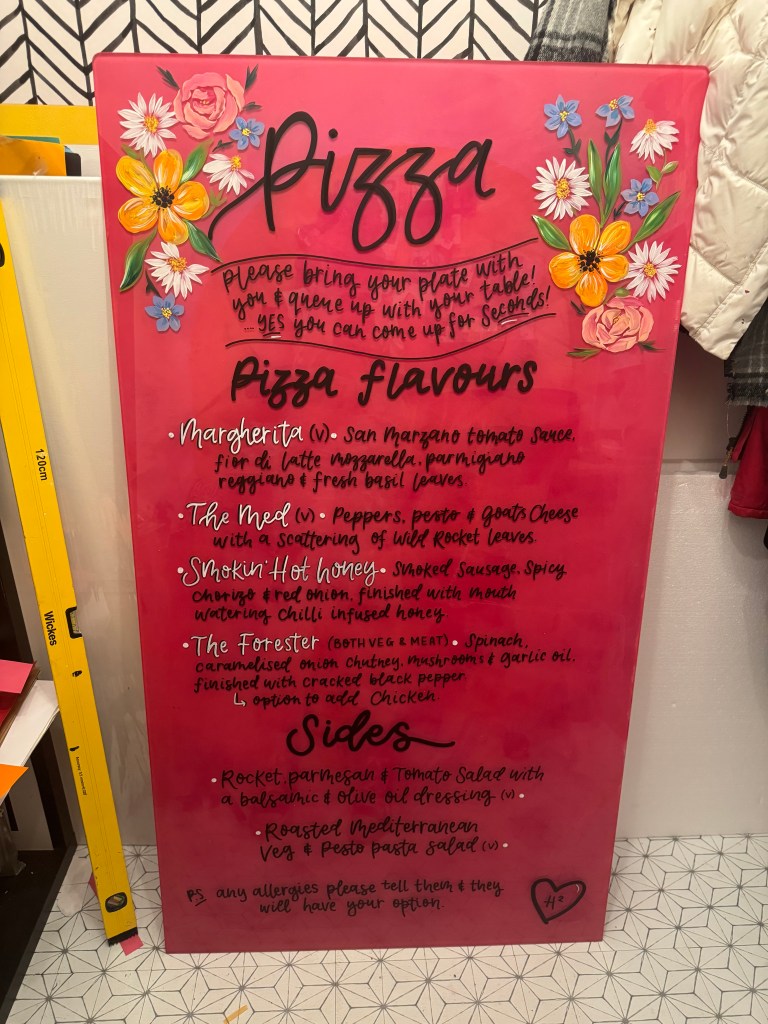 Pizza
Please bring your plate with
you & queue up with your table!
.... YES you can come up for Seconds!
Pizza flavours
• Margherita (V) • San Marzano tomato sauce,
fior di latte mozzarella, parmigiano
reggiano & fresh basil leaves.
• The Med (V) • Peppers, pesto & Goats Cheese
with a scattering of Wild Rocket leaves.
• Smokin' Hot honey • Smoked Sausage, Spicy
Chorizo & red onion, finished with mouth
watering Chilli infused honey
• The Forester (BOTH VEG & MEAT) • Spinach,
caramelised onion chutney, mushrooms & garlic oil,
finished with cracked black pepper.
↳ option to add Chicken
Sides
• Rocket, parmesan & Tomato Salad with
a balsamic & Olive oil dressing (V) •
• Roasted Mediterranean
Veg & Pesto pasta salad (V) •
PS any allergies please tell them & they
will have your option.
H²
120cm
Wickes